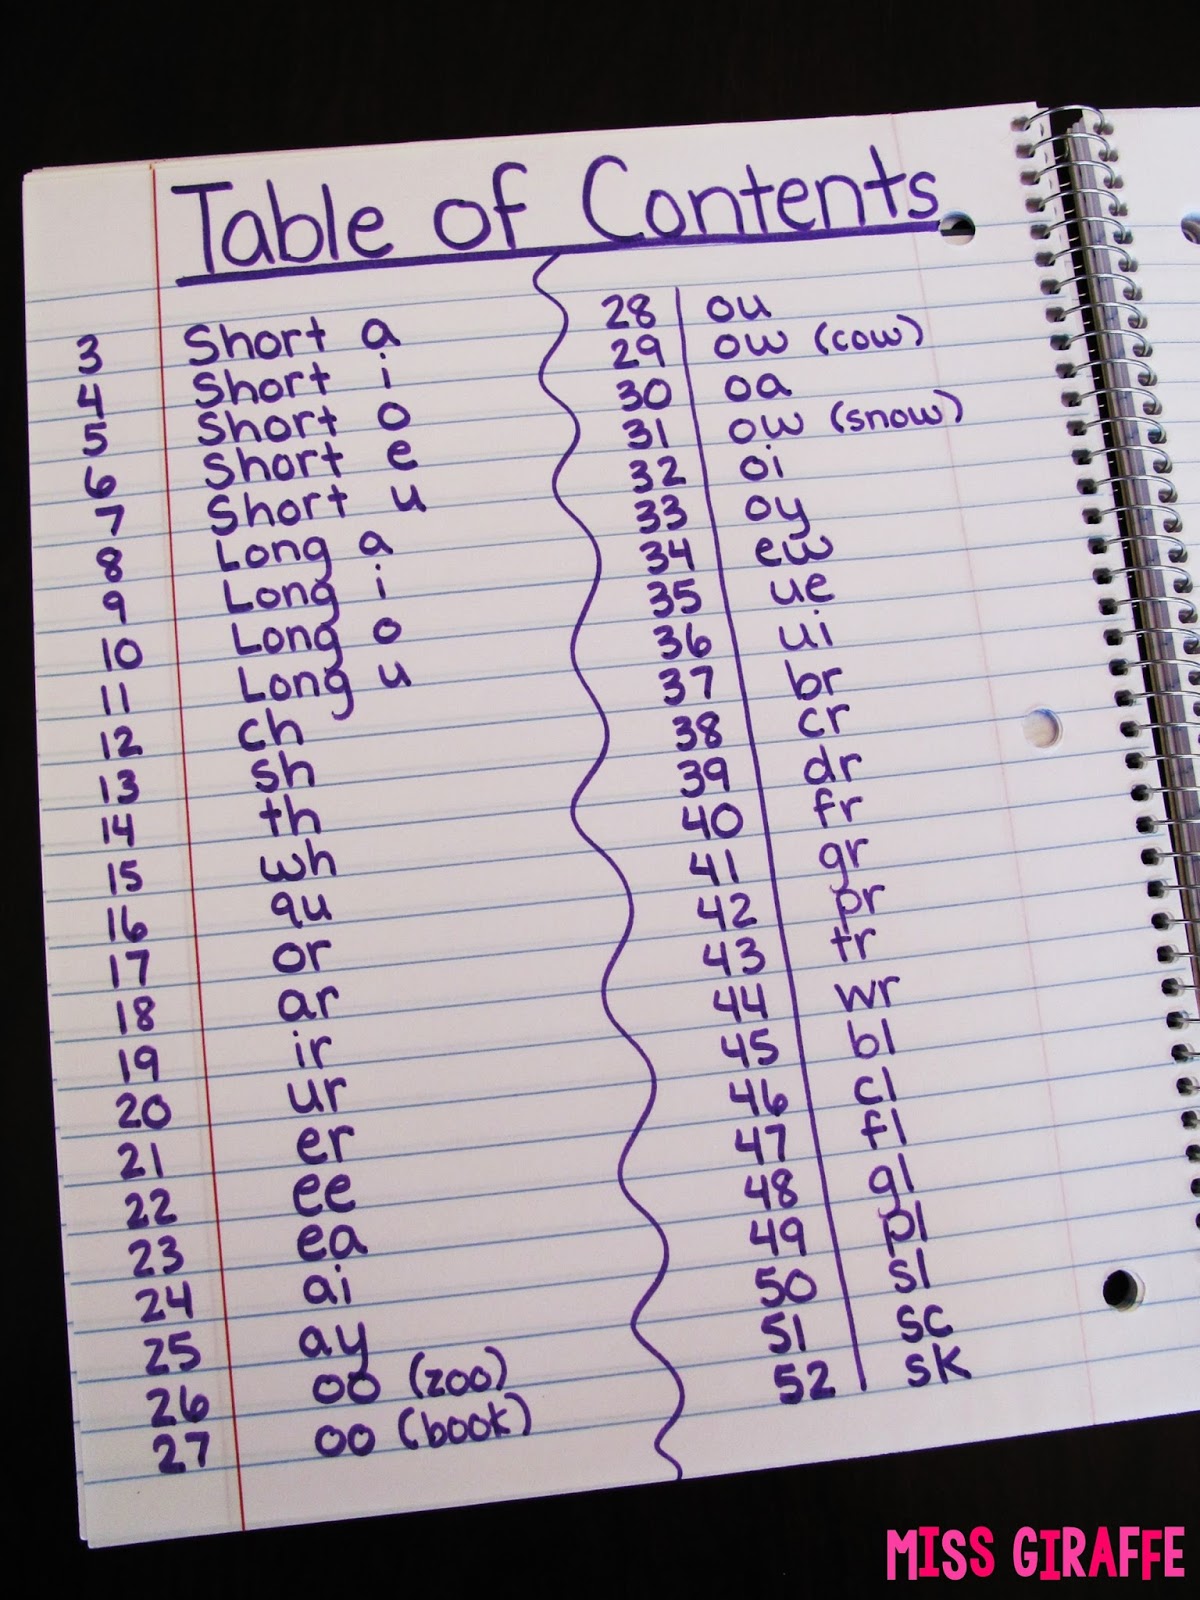 Table of Contents
3 Short a
4 Short i
5 Short o
6 Short e
7 Short u
8 Long a
9 Long i
10 Long o
11 Long u
12 ch
13 sh
14 th
15 wh
16 qu
17 or
18 ar
19 ir
20 ur
21 er
22 ee
23 ea
24 ai
25 ay
26 oo (zoo)
27 oo (book)
28 ou
29 ow (cow)
30 oa
31 ow (snow)
32 oi
33 oy
34 ew
35 ue
36 ui
37 br
38 cr
39 dr
40 fr
41 gr
42 pr
43 tr
44 wr
45 bl
46 cl
47 fl
48 gl
49 pl
50 sl
51 sc
52 sk
MISS GIRAFFE